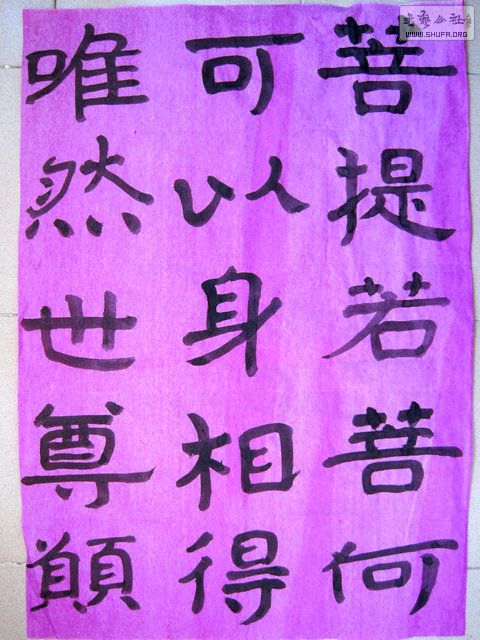 菩提若菩何
可以身相得
唯然世尊願
書藝公社
WWW.SHUFA.ORG